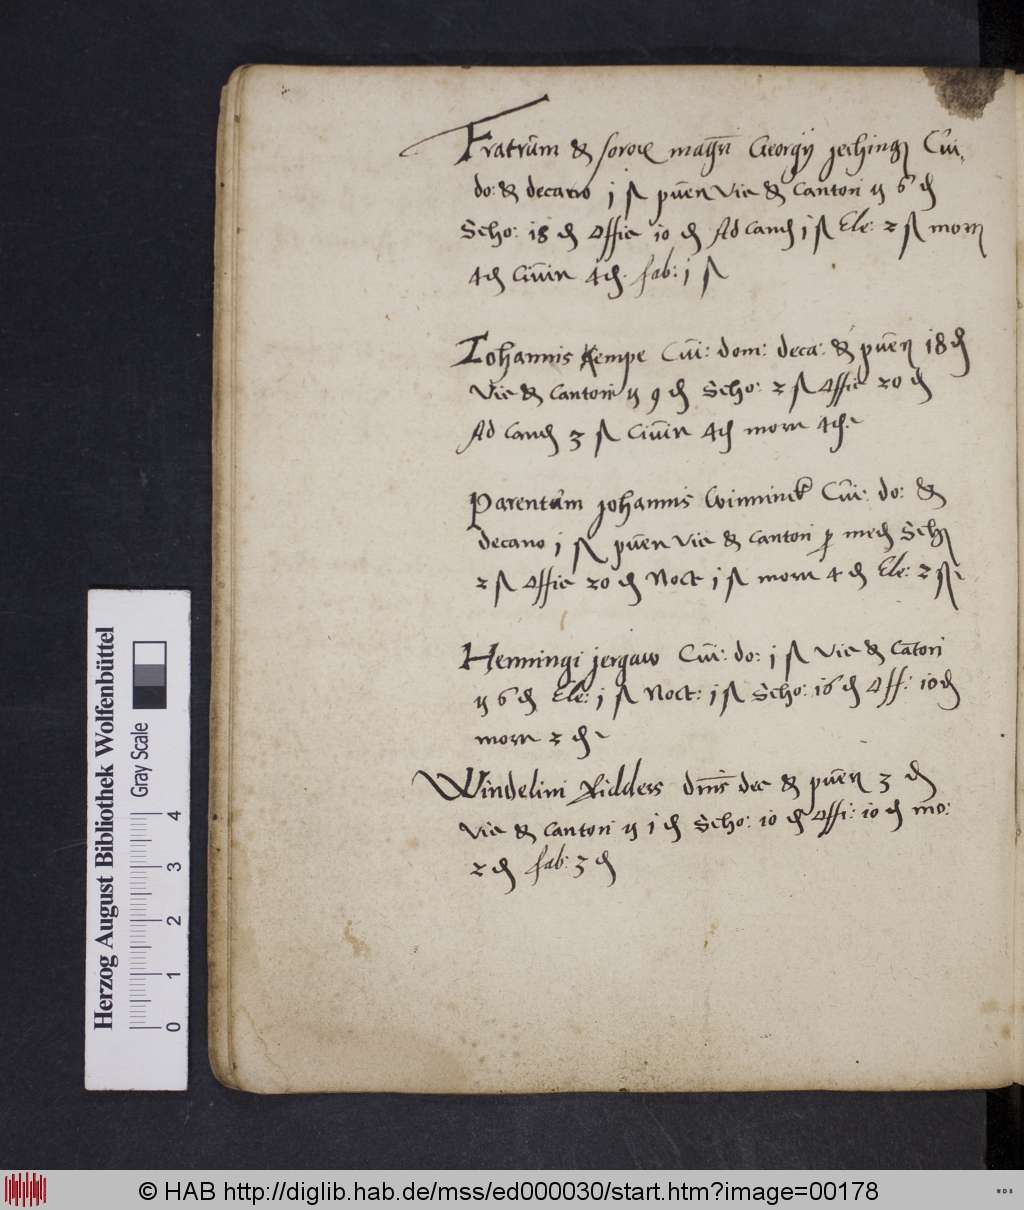 Fratrum & soror magri Georgij jechinges Cui:
do: & decano j ß puen Vic & Cantori ij 6 d
Scho: 18 d Offic 10 d Ad Cand 1 ß Ele: 2 ß morn
4 d Civin 4 d. fab: j ß
Iohannis Kempe Cui: dom: deca: & puen 18 d
Vic & Cantori ij 9 d Scho: 2 ß Offic 20 d
Ad Cand 3 ß Civin 4 d morn 4 d.
Parentum johannis Winninck Cui: do: &
decano j ß puen Vic & Cantori p med Sch
2 ß Offic 20 d Noct 1 ß morn 4 d Ele: 2 ß
Henningi jergaw Cui: do: j ß Vic & Catori
ij 6 d Ele: j ß Noct: 1 ß Scho: 16 d Off: 10 d
morn 2 d
Windelini Ridders dmis dec & puen 3 d
Vic & Cantori ij 1 d Scho: 10 d Offi: 10 d mo:
2 d fab: 3 d
Herzog August Bibliothek Wolfenbüttel
Gray Scale
0 1 2 3 4
© HAB http://diglib.hab.de/mss/ed000030/start.htm?image=00178